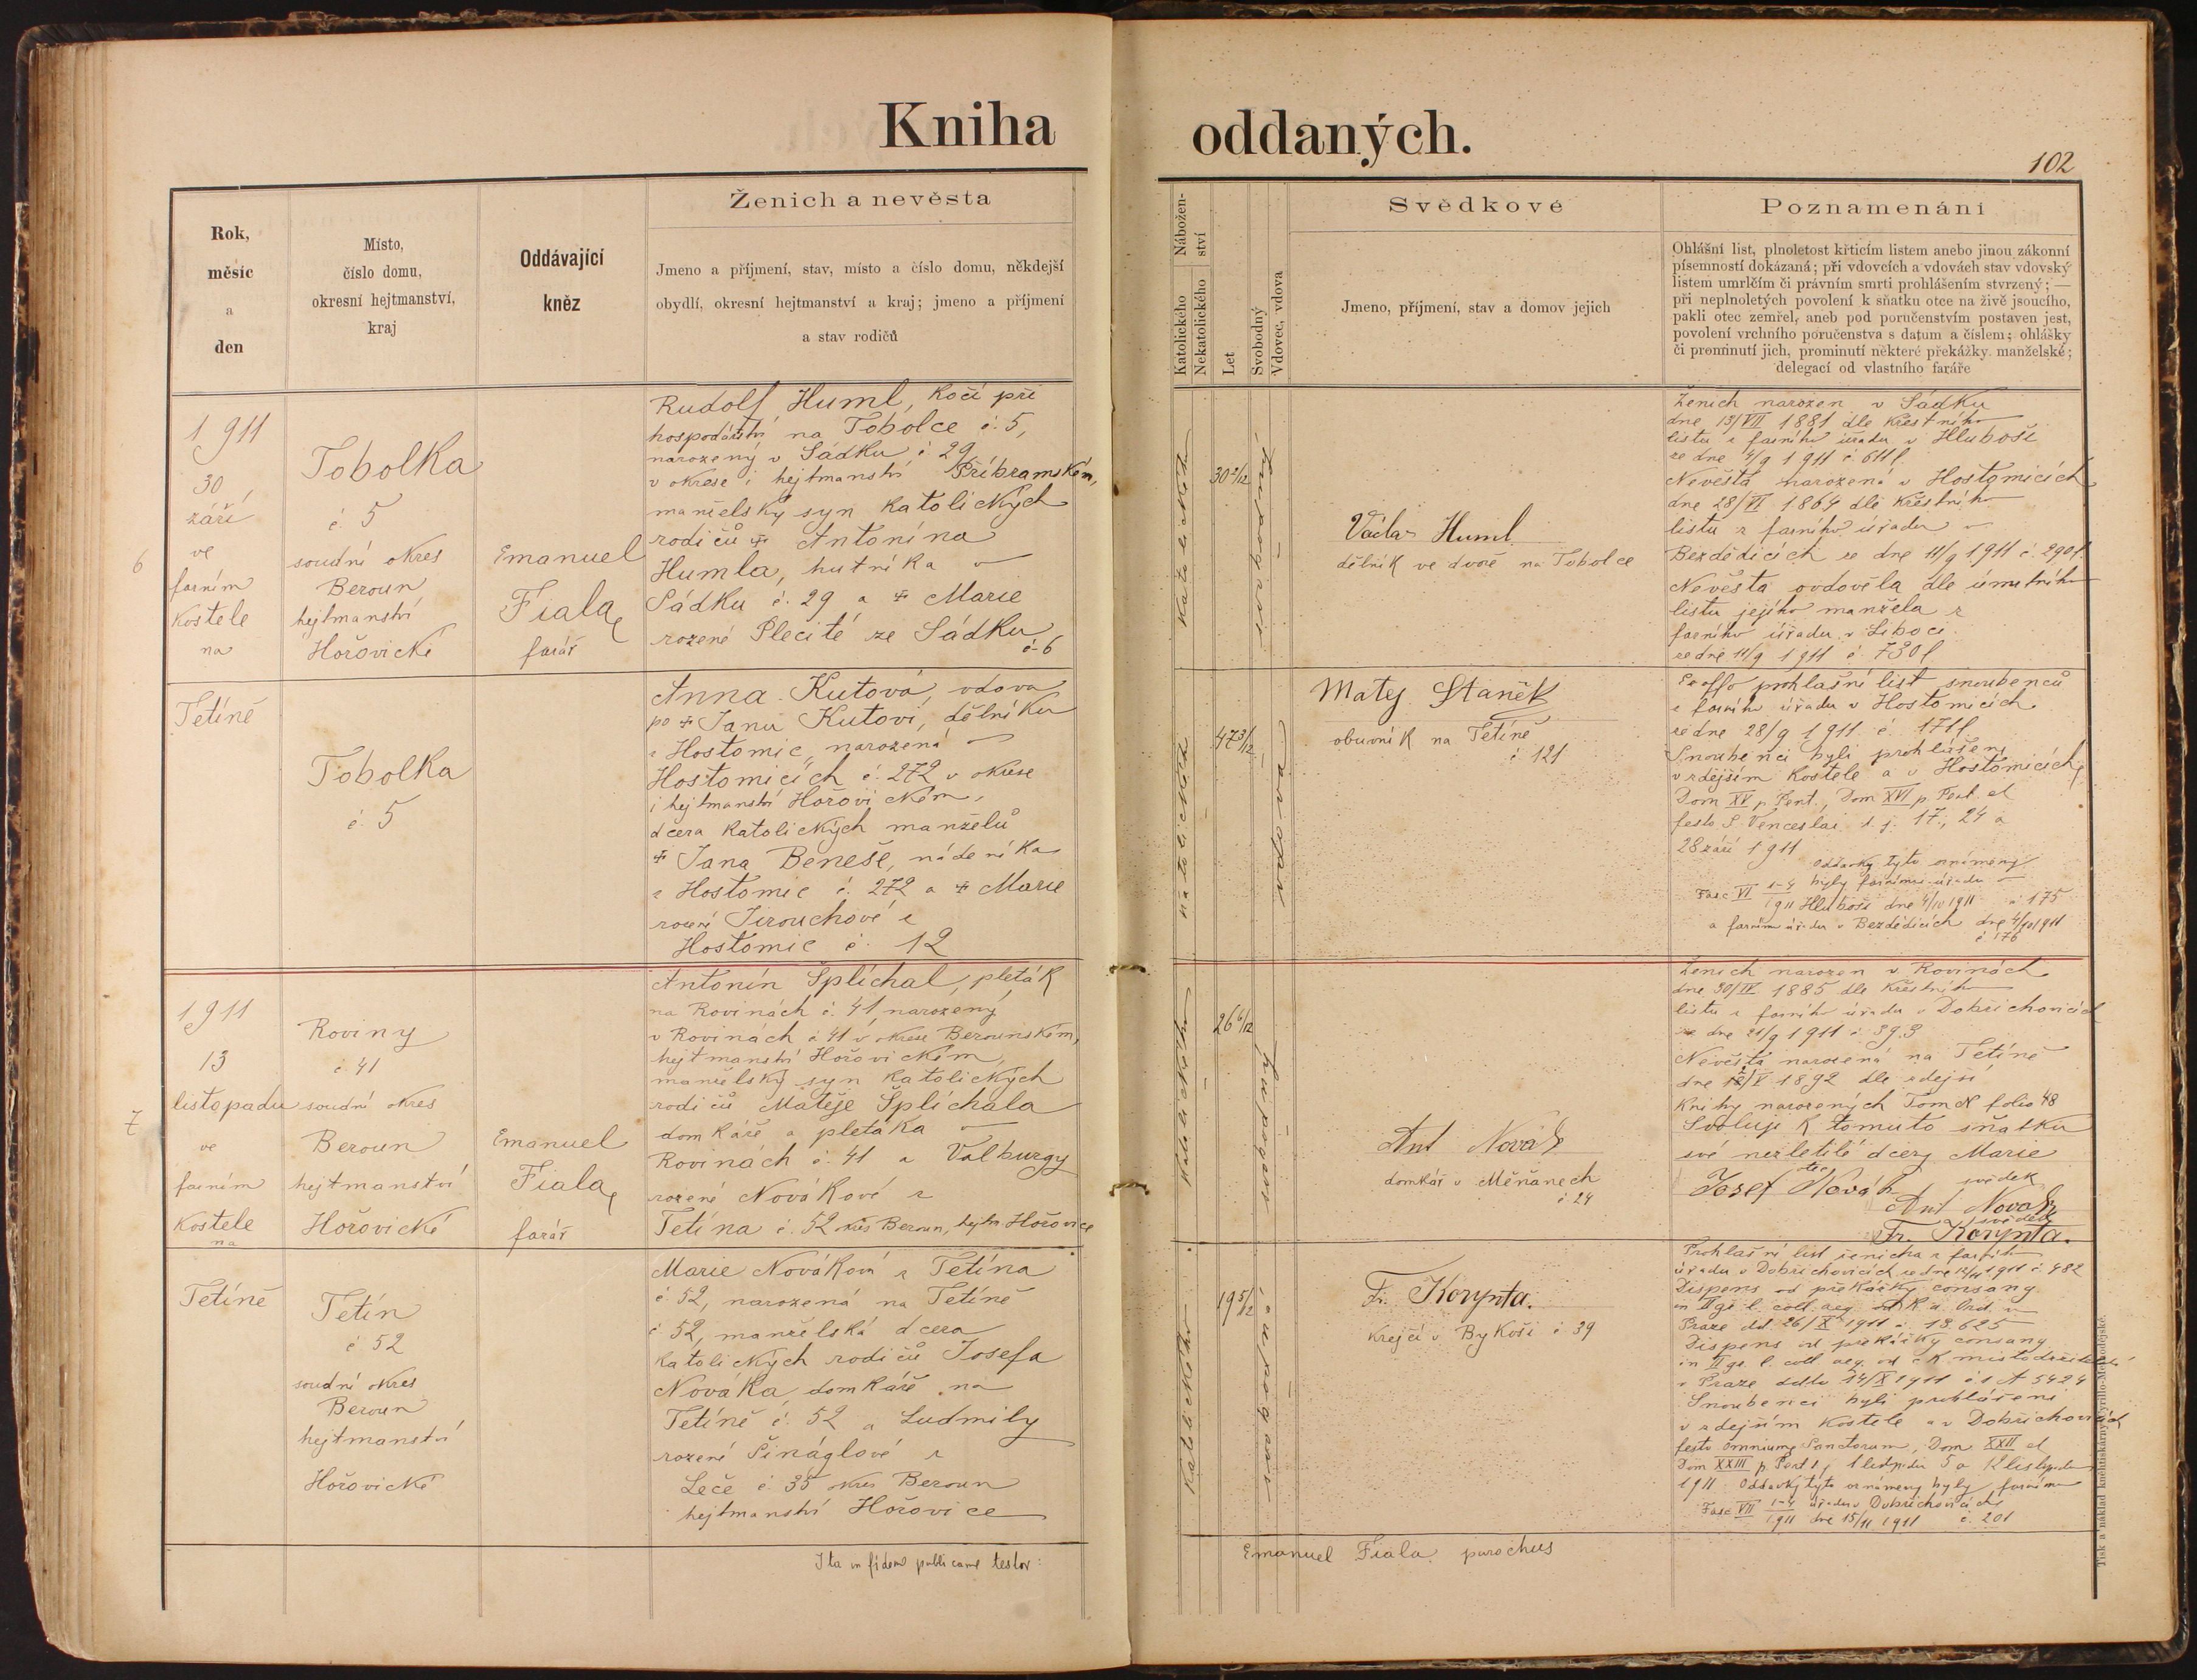 Kniha oddaných.
102
Rok,
měsíc
a
den
Místo,
číslo domu,
okresní hejtmanství,
kraj
Oddávající
kněz
Ženich a nevěsta
Jmeno a příjmení, stav, místo a číslo domu, někdejší
obydlí, okresní hejtmanství a kraj; jmeno a příjmení
a stav rodičů
Nábožen-
ství
Katolického
Nekatolického
Let
Svobodný
Vdovec, vdova
Svědkové
Jmeno, příjmení, stav a domov jejich
Poznamenání
Ohlášní list, plnoletost křticím listem anebo jinou zákonní
písemností dokázaná; při vdovcích a vdovách stav vdovský
listem umrlčím či právním smrti prohlášením stvrzený; —
při neplnoletých povolení k sňatku otce na živě jsoucího,
pakli otec zemřel, aneb pod poručenstvím postaven jest,
povolení vrchního poručenstva s datum a číslem; ohlášky
či prominutí jich, prominutí některé překážky manželské;
delegací od vlastního faráře
6
1911
30
září
ve
farním
Kostele
na
Tetíně
Tobolka
č. 5
soudní okres
Beroun
hejtmanství
Hořovické
Emanuel
Fiala,
farář
Rudolf Huml, kočí při
hospodářství na Tobolce č. 5,
narozený v Sádku č 29
v okrese i hejtmanství Příbramském,
manželský syn katolických
rodičů ✠ Antonína
Humla, hutníka v
Sádku č. 29 a ✠ Marie
rozené Plecité ze Sádku
č. 6
Katolického
30 2/12
svobodný
Václav Huml
dělník ve dvoře na Tobolce
Ženich narozen v Sádku
dne 13/VII 1881 dle křestního
listu z farního úřadu v Hluboši
ze dne 4/9 1911 č 611 f.
Nevěsta narozená v Hostomicích
dne 28/VI 1864 dle křestního
listu z farního úřadu v
Bezdědicích ze dne 11/9 1911 č. 290 f.
Nevěsta ovdověla dle úmrtního
listu jejího manžela z
farního úřadu v Liboci
ze dne 11/9 1911 č. 730 f
Tobolka
č. 5
Anna Kutová, vdova
po ✠ Janu Kutovi, dělníku
z Hostomic, narozená v
Hostomicích č. 272 v okrese
i hejtmanství Hořovickém,
dcera katolických manželů
✠ Jana Beneše, nádeníka
z Hostomic č. 272 a ✠ Marie
rozené Jirouchové z
Hostomic č. 12
Katolického
47 3/12
vdova
Matěj Staněk
obuvník na Tetíně
č 121
Ex offo prohlašní list snoubenců
z farního úřadu v Hostomicích
ze dne 28/9 1911 č. 171 f
Snoubenci byli prohlášeni
v zdejším kostele a v Hostomicích,
Dom XV p. Pent., Dom XVI p. Pent. et
festo S. Venceslai t. j. 17., 24 a
28 září 1911
Oddavky tyto oznámeny
Fasc VI 1-4/1911 byly farnímu úřadu v
Hluboši dne 4/10 1911 č 175
a farním úřadu v Bezdědicích dne 4/10 1911
č 176
7
1911
13
listopadu
ve
farním
Kostele
na
Tetíně
Roviny
č 41
soudní okres
Beroun
hejtmanství
Hořovické
Emanuel
Fiala,
farář
Antonín Šplíchal, pleták
na Rovinách č. 41, narozený
v Rovinách č 41 v okrese Berounském,
hejtmanství Hořovickém,
manželský syn katolických
rodičů Matěje Šplíchala
domkáře a pletáka v
Rovinách č. 41 a Valburgy
rozené Novákové z
Tetína č. 52 okres Beroun, hejtm. Hořovice
Katolického
26 6/12
svobodný
Ant Novák
domkář v Měňanech
č 24
Ženich narozen v Rovinách
dne 30/IV 1885 dle křestního
listu z farního úřadu v Dobřichovicích
ze dne 21/9 1911 č. 393
Nevěsta narozená na Tetíně
Knihy narozených Tom N folio 48
Svoluje k tomuto sňatku
své nezletilé dcery Marie
otec
Josef Novák
svědek
Ant Novák
svědek
Fr. Korynta.
Tetín
č. 52
soudní okres
Beroun
hejtmanství
Hořovické
Marie Nováková z Tetína
č. 52, narozená na Tetíně
č 52, manželská dcera
katolických rodičů Josefa
Nováka domkáře na
Tetíně č. 52 a Ludmily
rozené Šináglové z
Leče č. 35 okres Beroun
hejtmanství Hořovice
Katolického
19 5/12
svobodná
Fr. Korynta.
krejčí v Bykoši č 39
Prohlašní list ženicha z farního
úřadu v Dobřichovicích ze dne 12/11 1911 č. 482
Dispens od překážky consang.
in II gr. l. coll. aeq. od K. a. Ord. v
Praze dd. 26/X 1911 č. 13.625
Dispens od překážky consang
in II gr. l. coll aeq. od c. k. místodržitelství
Snoubenci byli prohlášeni
v zdejším kostele a v Dobřichovicích
festo Omnium Sanctorum, Dom XXII et
Dom XXIII p. Pent t. j. 1 listopadu 5 a 12 listopadu
1911. Oddavky tyto oznámeny byly farnímu
Fasc VII 1-4/1911 úřadu v Dobřichovicích
dne 15/11 1911 č. 201
Ita in fidem publicam testor:
Emanuel Fiala parochus
Tisk a náklad knihtiskárny Cyrillo-Methodějské.